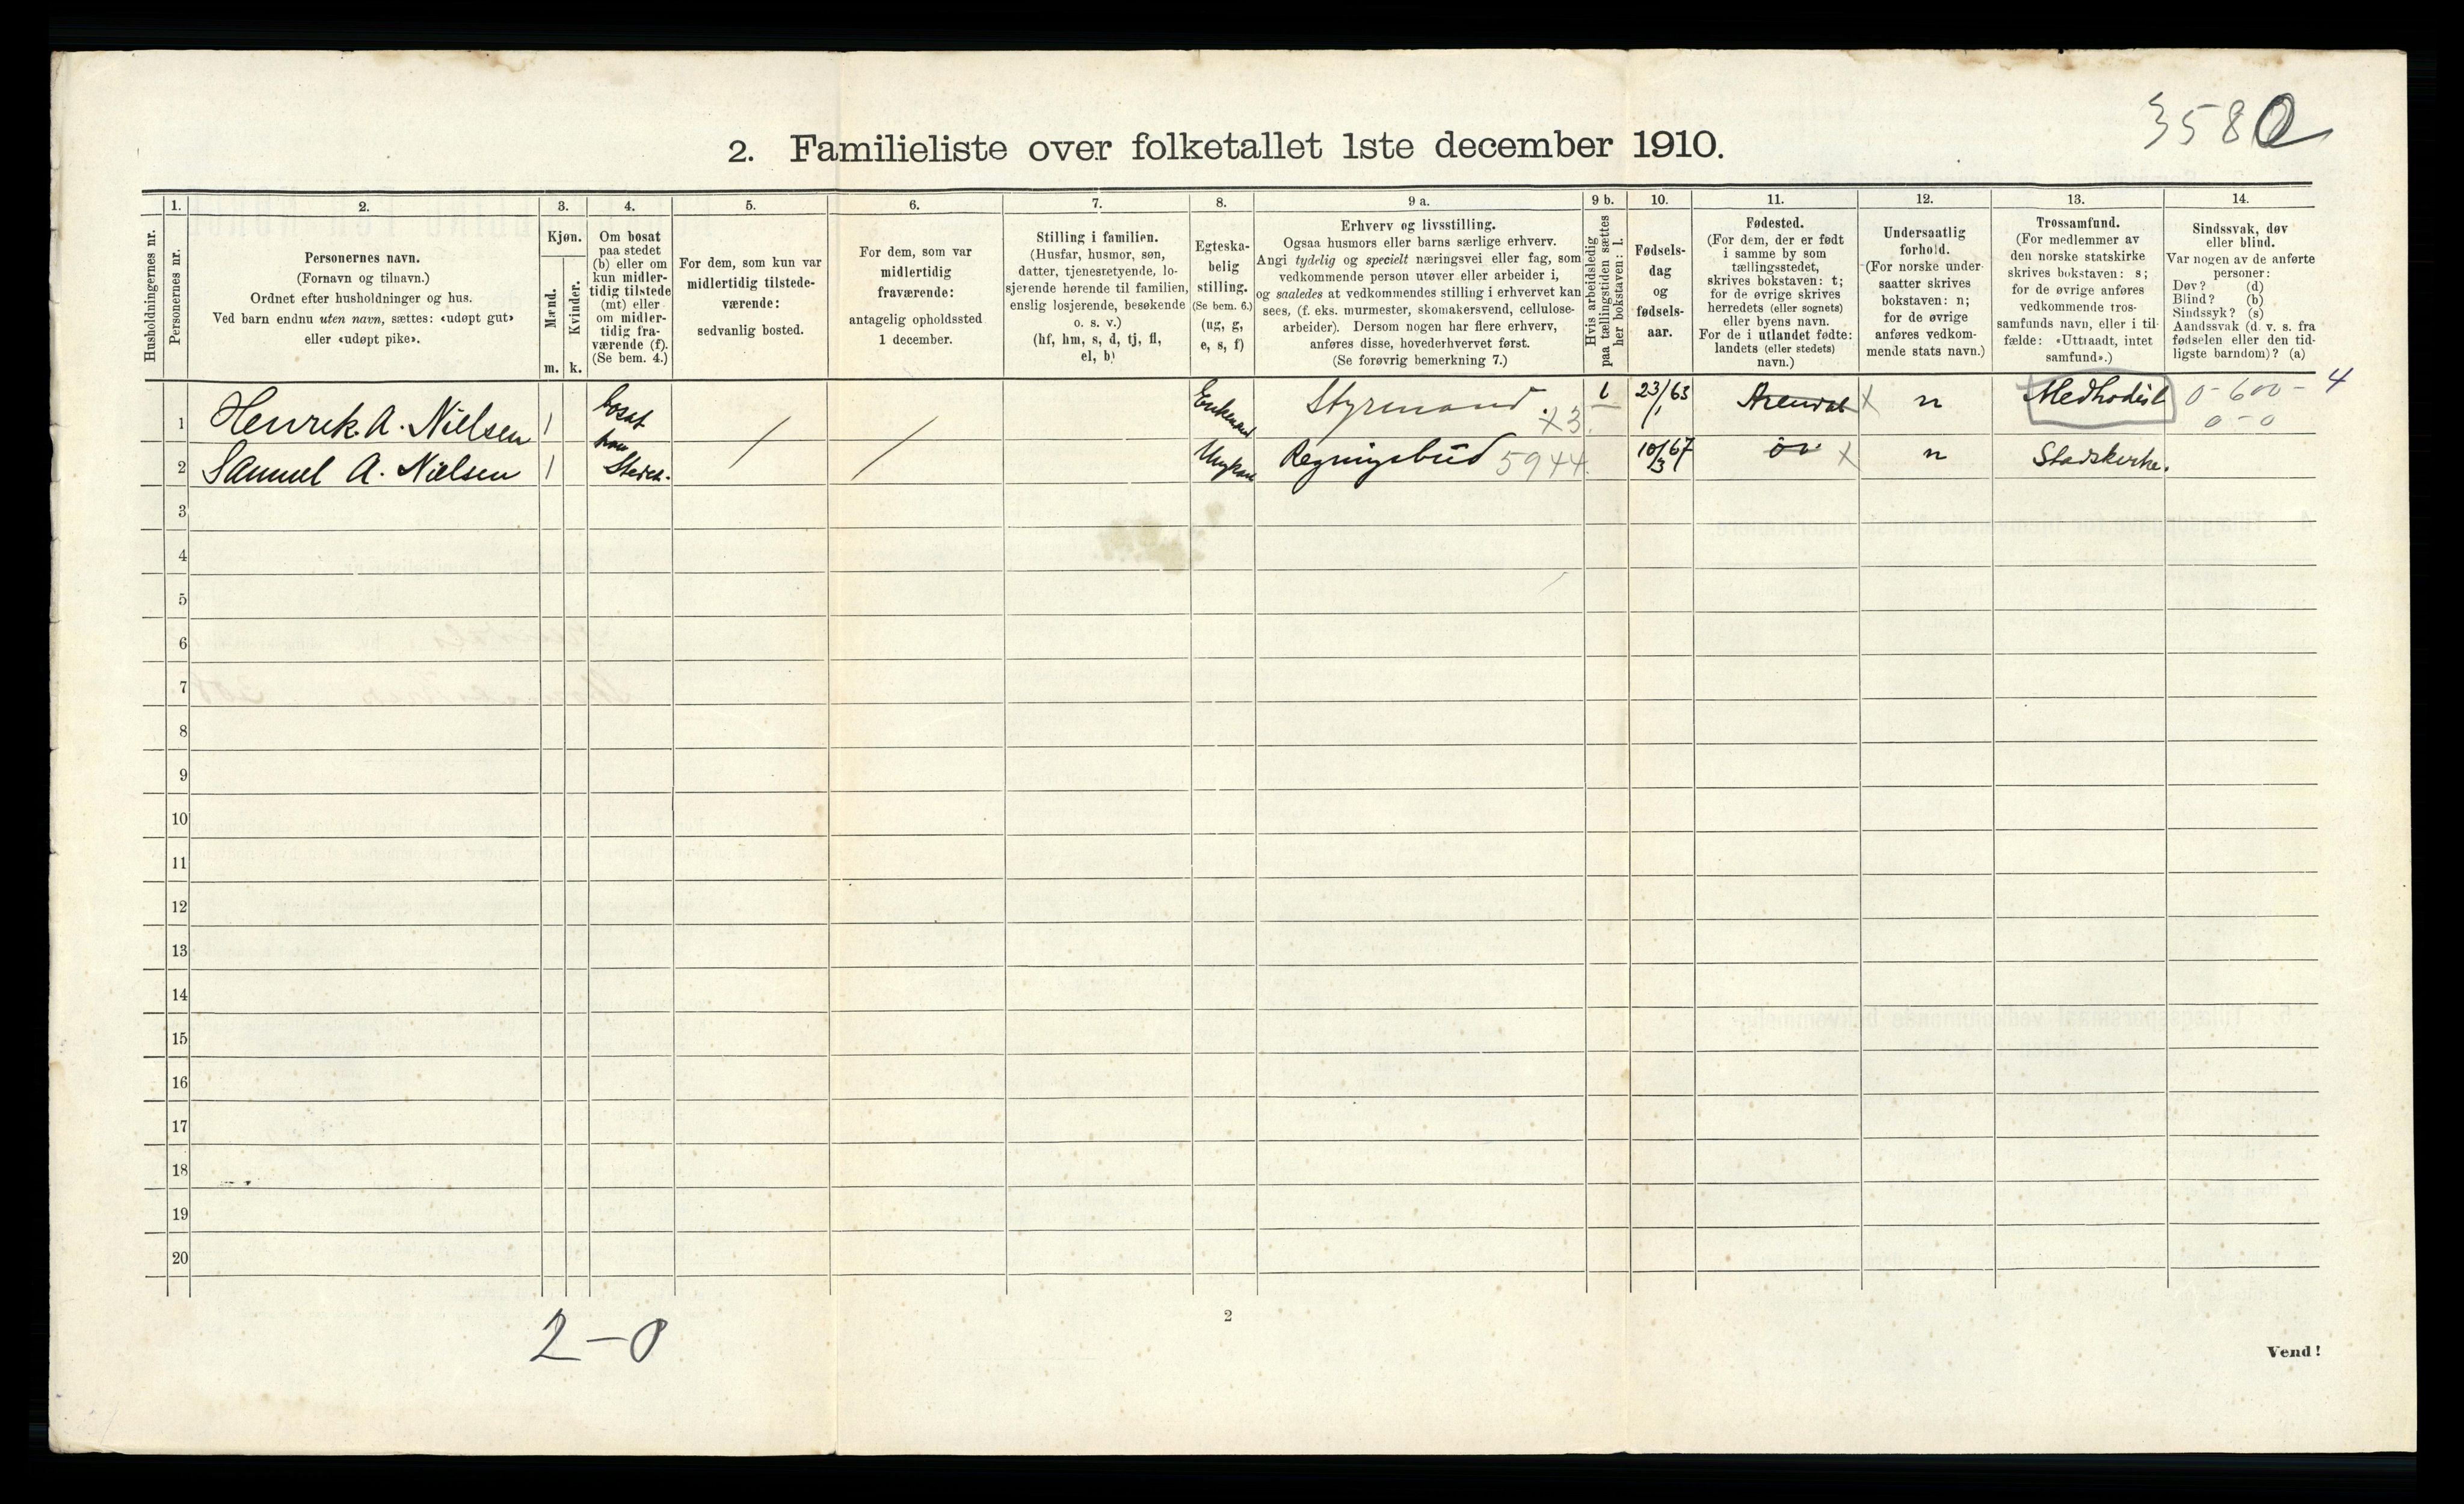 3580
2. Familieliste over folketallet 1ste december 1910.
Husholdningernes nr.
1.
Personernes nr.
2.
Personernes navn.
(Fornavn og tilnavn.)
Ordnet efter husholdninger og hus.
Ved barn endnu uten navn, sættes: «udøpt gut»
eller «udøpt pike».
3.
Kjøn.
Mænd.
Kvinder.
m. k.
4.
Om bosat
paa stedet
(b) eller om
kun midler-
tidig tilstede
(mt) eller
om midler-
tidig fra-
værende (f).
(Se bem. 4.)
5.
For dem, som kun var
midlertidig tilstede-
værende:
sedvanlig bosted.
6.
For dem, som var
midlertidig
fraværende:
antagelig opholdssted
1 december.
7.
Stilling i familien.
(Husfar, husmor, søn,
datter, tjenestetyende, lo-
sjerende hørende til familien,
enslig losjerende, besøkende
o. s. v.)
(hf, hm, s, d, tj, fl,
el, b)
8.
Egteska-
belig
stilling.
(Se bem. 6.)
(ug, g,
e, s, f)
9 a.
Erhverv og livsstilling.
Ogsaa husmors eller barns særlige erhverv.
Angi tydelig og specielt næringsvei eller fag, som
vedkommende person utøver eller arbeider i,
og saaledes at vedkommendes stilling i erhvervet kan
sees, (f. eks. murmester, skomakersvend, cellulose-
arbeider). Dersom nogen har flere erhverv,
anføres disse, hovederhvervet først.
(Se forøvrig bemerkning 7.)
9 b.
Hvis arbeidsledig
paa tællingstiden sættes
her bokstaven: l.
10.
Fødsels-
dag
og
fødsels-
aar.
11.
Fødested.
(For dem, der er født
i samme by som
tællingsstedet,
skrives bokstaven: t;
for de øvrige skrives
herredets (eller sognets)
eller byens navn.
For de i utlandet fødte:
landets (eller stedets)
navn.)
12.
Undersaatlig
forhold.
(For norske under-
saatter skrives
bokstaven: n;
for de øvrige
anføres vedkom-
mende stats navn.)
13.
Trossamfund.
(For medlemmer av
den norske statskirke
skrives bokstaven: s;
for de øvrige anføres
vedkommende tros-
samfunds navn, eller i til-
fælde: «Uttraadt, intet
samfund».)
14.
Sindssvak, døv
eller blind.
Var nogen av de anførte
personer:
Døv? (d)
Blind? (b)
Sindssyk? (s)
Aandssvak (d. v. s. fra
fødselen eller den tid-
ligste barndom)? (a)
1 Henrik. A. Nielsen 1 bosat / / Enkemand Styrmand x3. l 23/1 63 Arendal x n Methodist 0-600-4
0-0
2 Samuel A. Nielsen 1 Stedet. Ungkarl Regningsbud 5944 10/3 67 x n Statskirke.
3
4
5
6
7
8
9
10
11
12
13
14
15
16
17
18
19
20
2-0
2
Vend!